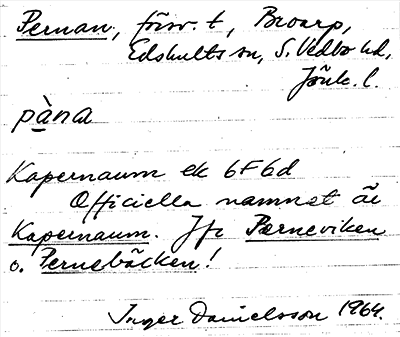 Pernan, försv. t, Broarp,
Edshults sn, S. Vedbo hd,
Jönk. l.
pàna
Kapernaum ek 6F6d
Officiella namnet är
Kapernaum. Jfr Pærneviken
o. Pernebäcken!
Inger Danielsson 1964.